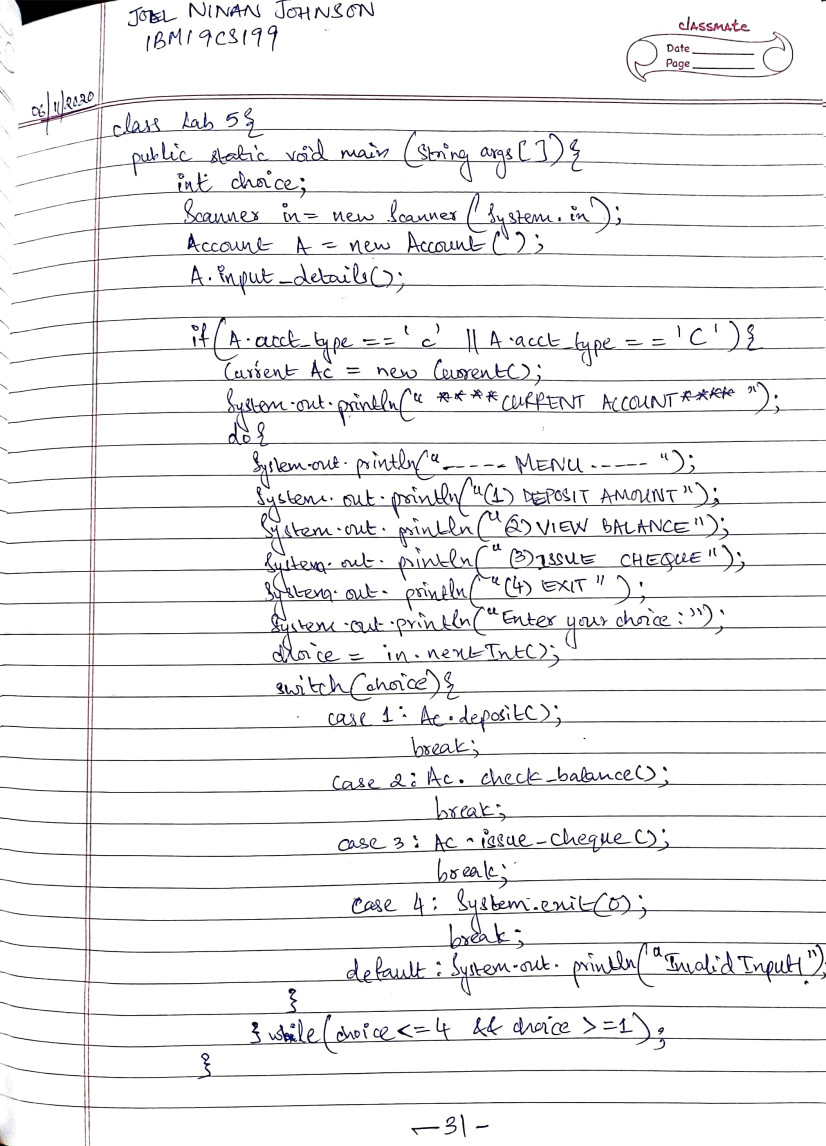 JOEL NINAN JOHNSON
1BM19CS199
classmate
Date
Page
06/11/2020
class Lab 5{
public static void main (String args[]){
int choice;
Scanner in = new Scanner (System.in);
Account A = new Account();
A.input_details();
if(A.acct_type == 'c' || A.acct_type == 'C'){
Current Ac = new Current();
System.out.println("****CURRENT ACCOUNT****");
do{
System.out.println("-----MENU-----");
System.out.println("(1) DEPOSIT AMOUNT");
System.out.println("(2) VIEW BALANCE");
System.out.println("(3) ISSUE CHEQUE");
System.out.println("(4) EXIT");
System.out.println("Enter your choice:");
choice = in.nextInt();
switch(choice){
case 1: Ac.deposit();
break;
case 2: Ac.check_balance();
break;
case 3: Ac.issue_cheque();
break;
case 4: System.exit(0);
break;
default: System.out.println("Invalid Input!");
}
}while(choice<=4 && choice >=1);
}
-31-